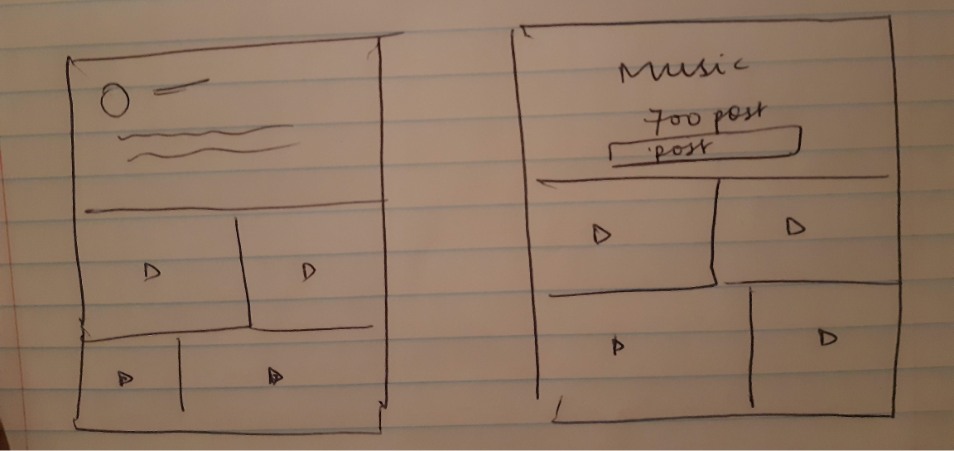 Music
700 post
post